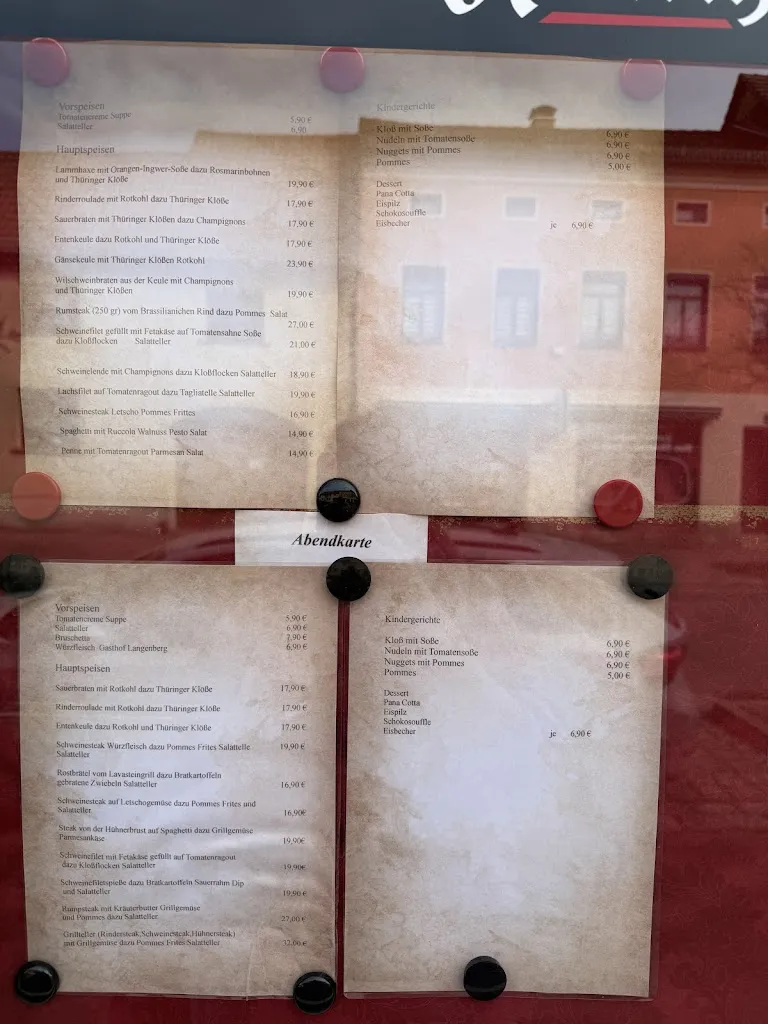 Vorspeisen
Tomatencreme Suppe 5,90 €
Salatteller 6,90
Hauptspeisen
Lammhaxe mit Orangen-Ingwer-Soße dazu Rosmarinbohnen
und Thüringer Klöße 19,90 €
Rinderroulade mit Rotkohl dazu Thüringer Klöße 17,90 €
Sauerbraten mit Thüringer Klößen dazu Champignons 17,90 €
Entenkeule dazu Rotkohl und Thüringer Klöße 17,90 €
Gänsekeule mit Thüringer Klößen Rotkohl 23,90 €
Wilschweinbraten aus der Keule mit Champignons
und Thüringer Klößen 19,90 €
Rumsteak (250 gr) vom Brassilianichen Rind dazu Pommes Salat
27,00 €
Schweinefilet gefüllt mit Fetakäse auf Tomatensahne Soße
dazu Kloßflocken Salatteller 21,00 €
Schweinelende mit Champignons dazu Kloßflocken Salatteller 18,90 €
Lachsfilet auf Tomatenragout dazu Tagliatelle Salatteller 19,90 €
Schweinesteak Letscho Pommes Frittes 16,90 €
Spaghetti mit Ruccola Walnuss Pesto Salat 14,90 €
Penne mit Tomatenragout Parmesan Salat 14,90 €
Kindergerichte
Kloß mit Soße 6,90 €
Nudeln mit Tomatensoße 6,90 €
Nuggets mit Pommes 6,90 €
Pommes 5,00 €
Dessert
Pana Cotta
Eispilz
Schokosouffle
Eisbecher je 6,90 €
Abendkarte
Vorspeisen
Tomatencreme Suppe 5,90 €
Salatteller 6,90 €
Bruschetta 7,90 €
Würzfleisch Gasthof Langenberg 6,90 €
Hauptspeisen
Sauerbraten mit Rotkohl dazu Thüringer Klöße 17,90 €
Rinderroulade mit Rotkohl dazu Thüringer Klöße 17,90 €
Entenkeule dazu Rotkohl und Thüringer Klöße 17,90 €
Schweinesteak Würzfleisch dazu Pommes Frites Salattelle 19,90 €
Salatteller
Rostbrätel vom Lavasteingrill dazu Bratkartoffeln
gebratene Zwiebeln Salatteller 16,90 €
Schweinesteak auf Letschogemüse dazu Pommes Frites und
Salatteller 16,90€
Steak von der Hühnerbrust auf Spaghetti dazu Grillgemüse
Parmesankäse 19,90€
Schweinefilet mit Fetakäse gefüllt auf Tomatenragout
dazu Kloßflocken Salatteller 19,90€
Schweinefiletspieße dazu Bratkartoffeln Sauerrahm Dip
und Salatteller 19,90 €
Rumpsteak mit Kräuterbutter Grillgemüse
und Pommes dazu Salatteller 27,00 €
Grillteller (Rindersteak,Schweinesteak,Hühnersteak)
mit Grillgemüse dazu Pommes Frites Salatteller
Kindergerichte
Kloß mit Soße 6,90 €
Nudeln mit Tomatensoße 6,90 €
Nuggets mit Pommes 6,90 €
Pommes 5,00 €
Dessert
Pana Cotta
Eispilz
Schokosouffle
Eisbecher je 6,90 €